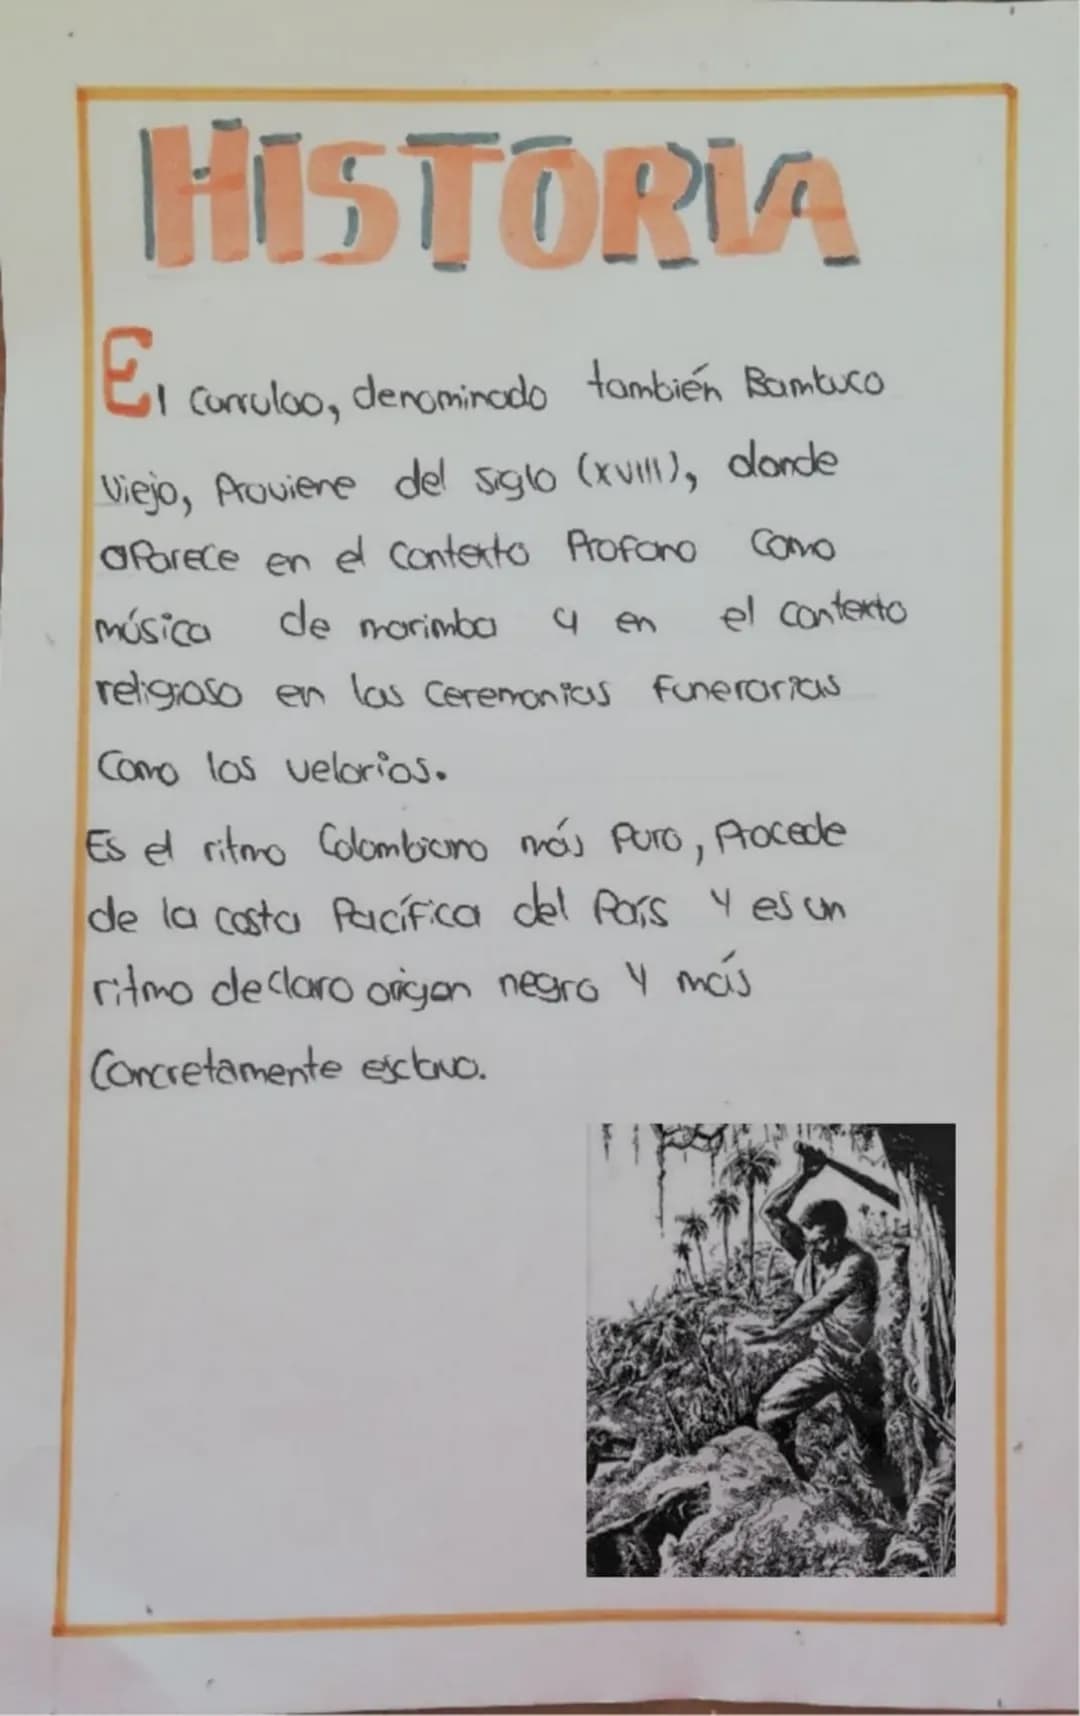 HISTORIA
El currulao, denominado también Bambuco
Viejo, Proviene del siglo (XVIII), donde
aparece en el contexto Profano como
música de marimba y en el contexto
religioso en las ceremonias Funerarias
como los velorios.
Es el ritmo Colombiano más Puro, Procede
de la costa Pacífica del País y es un
ritmo de claro origen negro y más
Concretamente esclavo.